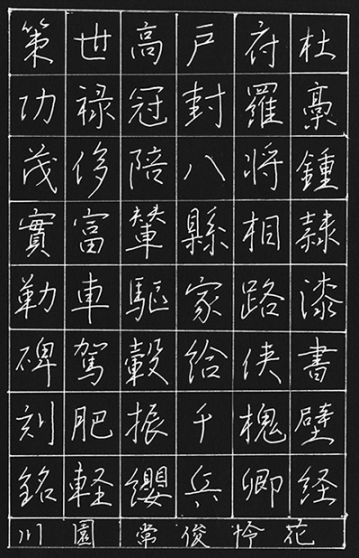 杜稾鍾隷漆書壁経
府羅将相路侠槐卿
戸封八縣家給千兵
高冠陪輦驅轂振纓
世禄侈富車駕肥軽
策功茂實勒碑刻銘
花怜俊常園川